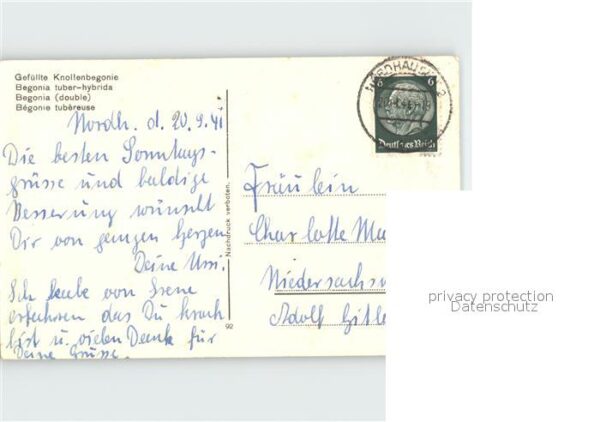 Gefüllte Knollenbegonie
Begonia tuber-hybrida
Begonia (double)
Bégonie tubéreuse
Nordh. d. 20.9.41
Die besten Sonntags-
grüsse und baldige
Besserung wünscht
Dir von ganzem Herzen
Deine Ursi.
Ich habe von Irene
erfahren das Du krank
bist u. vielen Dank für
Deine Grüsse.
Nachdruck verboten.
92
NORDHAUSEN 2
6 6
Deutsches Reich
Fräulein
Charlotte Mu
Niedersachsw
Adolf Hitle
privacy protection
Datenschutz